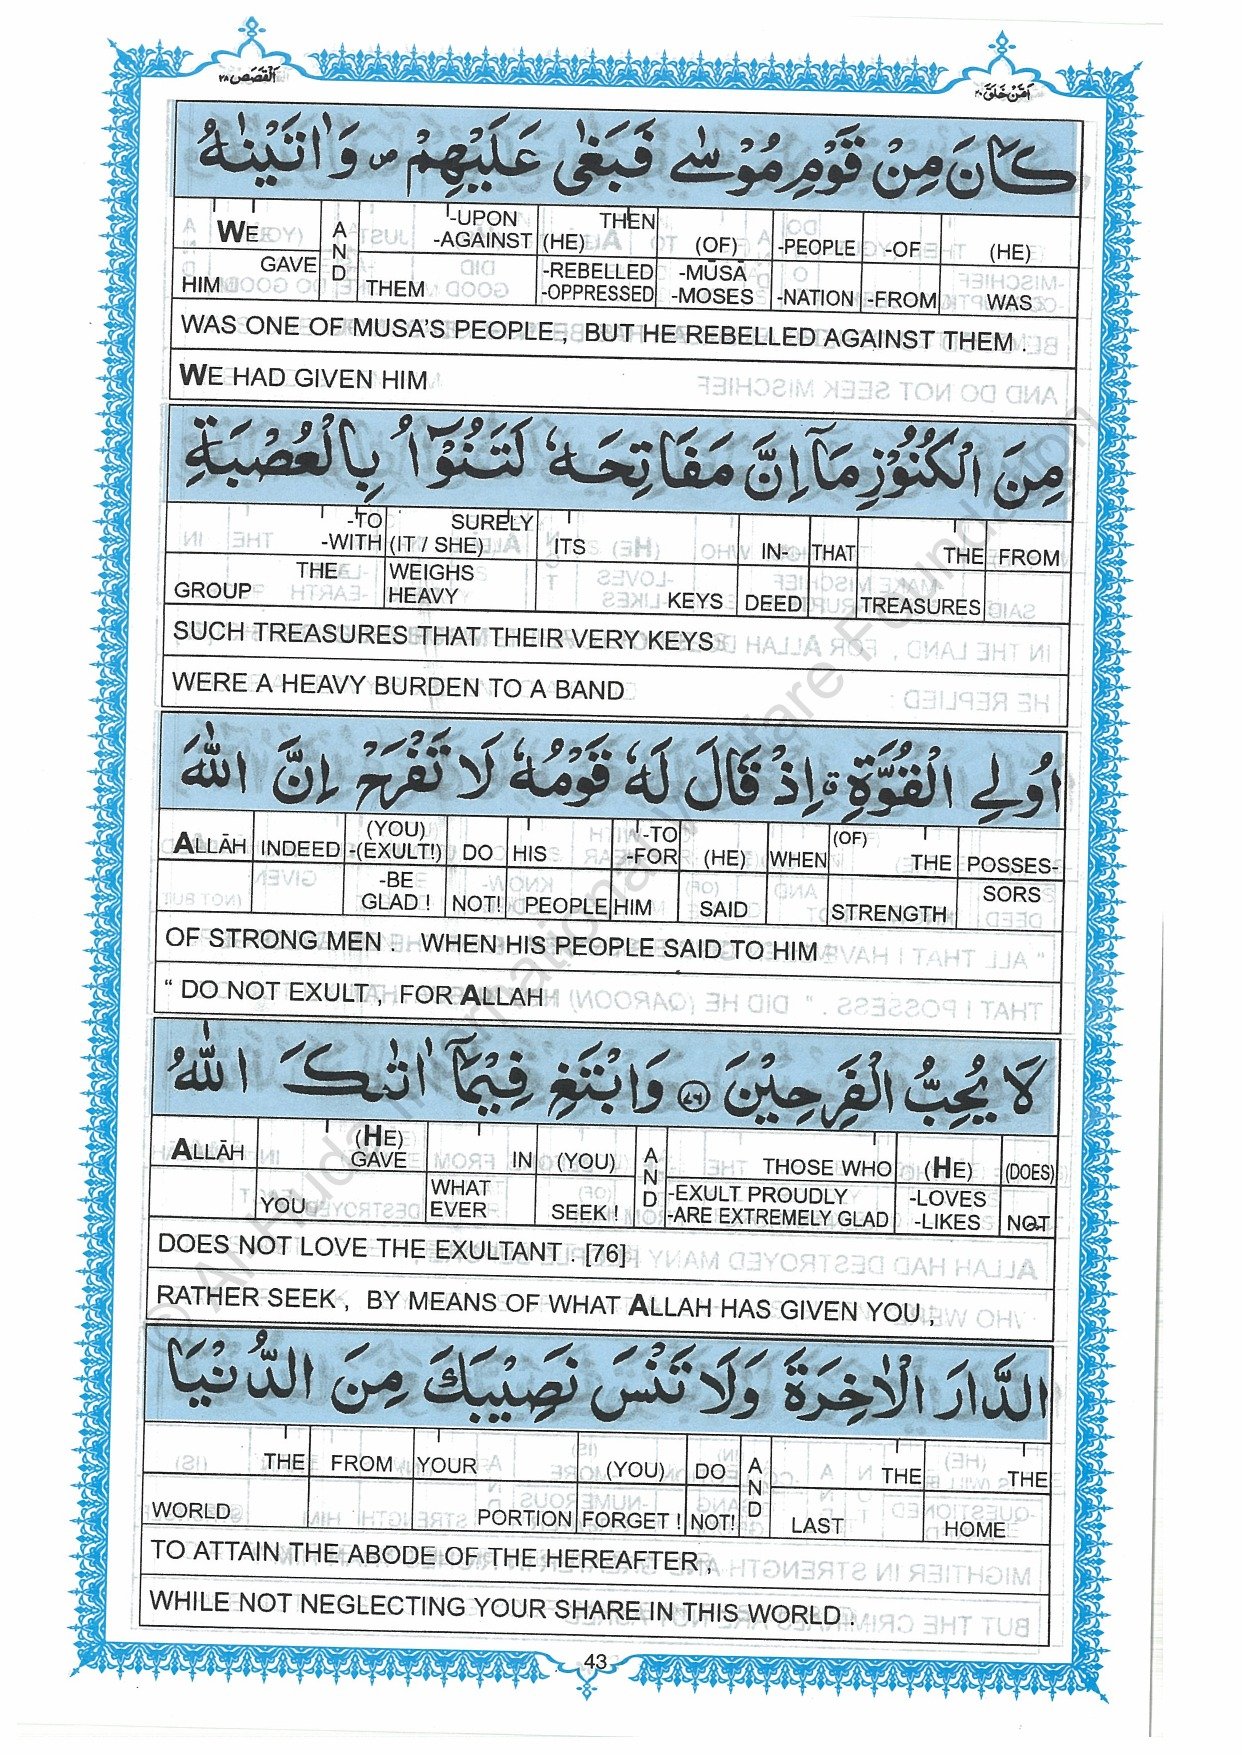 اَلْقَصَص ٢٨
اَمَّنْ خَلَقَ ٢٠
كَانَ مِنْ قَوْمِ مُوْسٰى فَبَغٰى عَلَيْهِمْ ۖ وَاٰتَيْنٰهُ
WE AND -UPON THEN (OF) -PEOPLE -OF (HE)
-AGAINST (HE)
GAVE HIM THEM -REBELLED -MŪSĀ -NATION -FROM WAS
-OPPRESSED -MOSES
WAS ONE OF MUSA'S PEOPLE , BUT HE REBELLED AGAINST THEM .
WE HAD GIVEN HIM
مِنَ الْكُنُوْزِ مَاۤ اِنَّ مَفَاتِحَهٗ لَتَنُوْٓاُ بِالْعُصْبَةِ
-TO SURELY ITS IN- THAT THE FROM
-WITH (IT / SHE)
THE GROUP WEIGHS KEYS DEED TREASURES
HEAVY
SUCH TREASURES THAT THEIR VERY KEYS
WERE A HEAVY BURDEN TO A BAND
اُولِي الْقُوَّةِ ۤ اِذْ قَالَ لَهٗ قَوْمُهٗ لَا تَفْرَحْ اِنَّ اللّٰهَ
ALLĀH INDEED (YOU) DO HIS -TO (HE) WHEN (OF) THE POSSES-
-(EXULT!) -FOR
-BE NOT! PEOPLE HIM SAID STRENGTH SORS
GLAD !
OF STRONG MEN . WHEN HIS PEOPLE SAID TO HIM
“ DO NOT EXULT , FOR ALLAH
لَا يُحِبُّ الْفَرِحِيْنَ ﴿٧٦﴾ وَابْتَغِ فِيْمَاۤ اٰتٰىكَ اللّٰهُ
ALLĀH (HE) IN (YOU) AND THOSE WHO (HE) (DOES)
GAVE
YOU WHAT SEEK ! -EXULT PROUDLY -LOVES NOT
EVER -ARE EXTREMELY GLAD -LIKES
DOES NOT LOVE THE EXULTANT . [76]
RATHER SEEK , BY MEANS OF WHAT ALLAH HAS GIVEN YOU ,
الدَّارَ الْاٰخِرَةَ وَلَا تَنْسَ نَصِيْبَكَ مِنَ الدُّنْيَا
THE FROM YOUR (YOU) DO AND THE THE
WORLD PORTION FORGET ! NOT! LAST HOME
TO ATTAIN THE ABODE OF THE HEREAFTER ,
WHILE NOT NEGLECTING YOUR SHARE IN THIS WORLD .
43
© Al Huda International Welfare Foundation